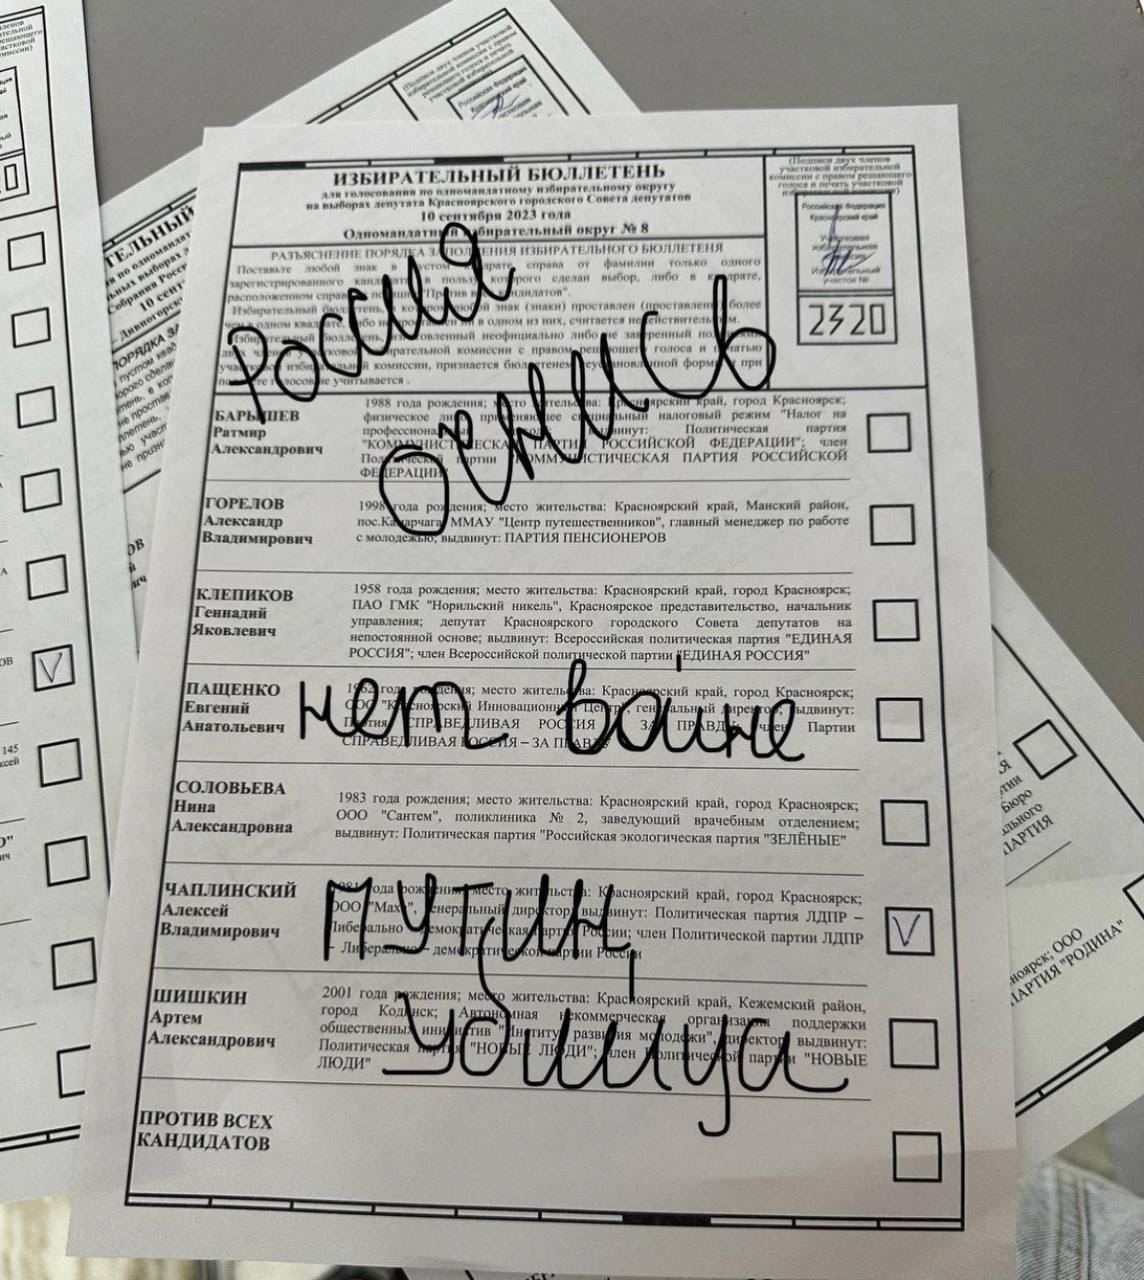 ИЗБИРАТЕЛЬНЫЙ БЮЛЛЕТЕНЬ
для голосования по одномандатному избирательному округу
на выборах депутата Красноярского городского Совета депутатов
10 сентября 2023 года
Одномандатный избирательный округ № 8
(Подписи двух членов
участковой избирательной
комиссии с правом решающего
голоса и печать участковой
избирательной комиссии)
Российская Федерация
Красноярский край
Участковая
избирательная
комиссия
Избирательный
участок №
2320
РАЗЪЯСНЕНИЕ ПОРЯДКА ЗАПОЛНЕНИЯ ИЗБИРАТЕЛЬНОГО БЮЛЛЕТЕНЯ
Поставьте любой знак в пустом квадрате справа от фамилии только одного
зарегистрированного кандидата, в пользу которого сделан выбор, либо в квадрате,
расположенном справа от позиции "Против всех кандидатов".
Избирательный бюллетень, в котором любой знак (знаки) проставлен (проставлены) более
чем в одном квадрате, либо не проставлен ни в одном из них, считается недействительным.
Избирательный бюллетень, изготовленный неофициально либо не заверенный подписями
двух членов участковой избирательной комиссии с правом решающего голоса и печатью
участковой избирательной комиссии, признается бюллетенем неустановленной формы и при
подсчете голосов не учитывается .
Россия
очнись
БАРЫШЕВ
Ратмир
Александрович
1988 года рождения; место жительства: Красноярский край, город Красноярск;
физическое лицо, применяющее специальный налоговый режим "Налог на
профессиональный доход"; выдвинут: Политическая партия
"КОММУНИСТИЧЕСКАЯ ПАРТИЯ РОССИЙСКОЙ ФЕДЕРАЦИИ"; член
Политической партии "КОММУНИСТИЧЕСКАЯ ПАРТИЯ РОССИЙСКОЙ
ФЕДЕРАЦИИ"
ГОРЕЛОВ
Александр
Владимирович
1998 года рождения; место жительства: Красноярский край, Манский район,
пос.Камарчага, ММАУ "Центр путешественников", главный менеджер по работе
с молодежью; выдвинут: ПАРТИЯ ПЕНСИОНЕРОВ
КЛЕПИКОВ
Геннадий
Яковлевич
1958 года рождения; место жительства: Красноярский край, город Красноярск;
ПАО ГМК "Норильский никель", Красноярское представительство, начальник
управления; депутат Красноярского городского Совета депутатов на
непостоянной основе; выдвинут: Всероссийская политическая партия "ЕДИНАЯ
РОССИЯ"; член Всероссийской политической партии "ЕДИНАЯ РОССИЯ"
ПАЩЕНКО
Евгений
Анатольевич
1962 года рождения; место жительства: Красноярский край, город Красноярск;
ООО "Красноярский Инновационный Центр", генеральный директор; выдвинут:
Партия СПРАВЕДЛИВАЯ РОССИЯ – ЗА ПРАВДУ; член Партии
СПРАВЕДЛИВАЯ РОССИЯ – ЗА ПРАВДУ
нет войне
СОЛОВЬЕВА
Нина
Александровна
1983 года рождения; место жительства: Красноярский край, город Красноярск;
ООО "Сантем", поликлиника № 2, заведующий врачебным отделением;
выдвинут: Политическая партия "Российская экологическая партия "ЗЕЛЁНЫЕ"
ЧАПЛИНСКИЙ
Алексей
Владимирович
1981 года рождения; место жительства: Красноярский край, город Красноярск;
ООО "Мах", генеральный директор; выдвинут: Политическая партия ЛДПР –
Либерально – демократическая партия России; член Политической партии ЛДПР
– Либерально – демократической партии России
V
ПУТИН,
ШИШКИН
Артем
Александрович
2001 года рождения; место жительства: Красноярский край, Кежемский район,
город Кодинск; Автономная некоммерческая организация поддержки
общественных инициатив "Институт развития молодежи", директор; выдвинут:
Политическая партия "НОВЫЕ ЛЮДИ"; член Политической партии "НОВЫЕ
ЛЮДИ"
убийца
ПРОТИВ ВСЕХ
КАНДИДАТОВ